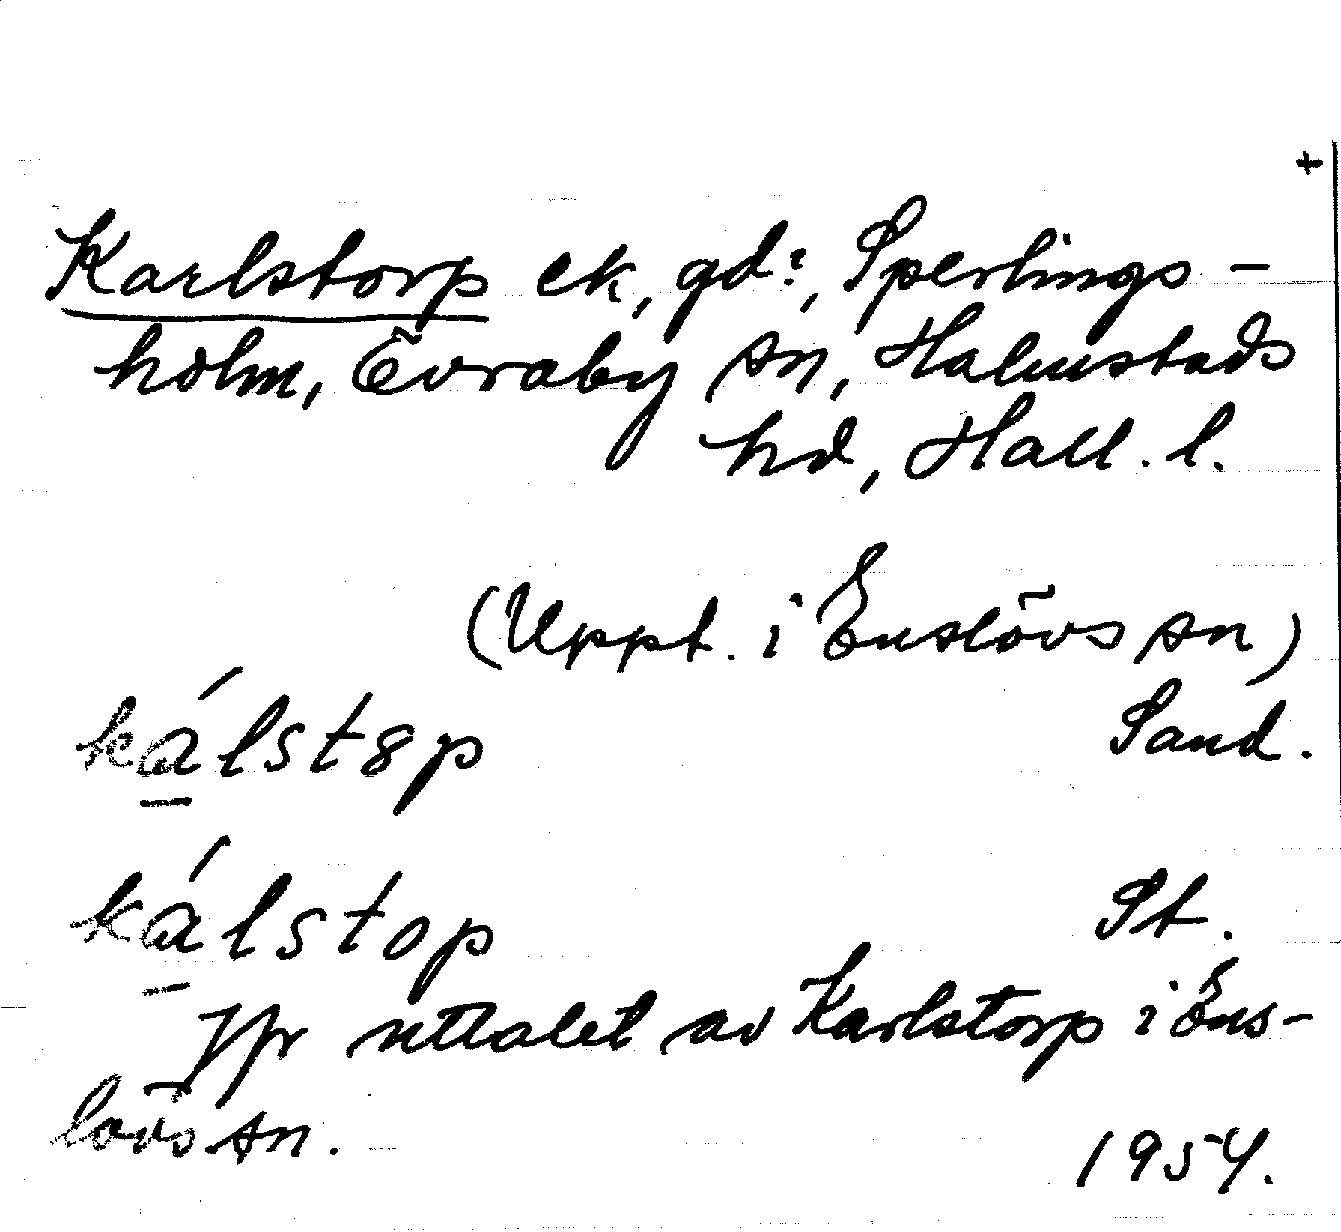 +
Karlstorp ek, gd:, Sperlings-
holm, Övraby sn, Halmstads
hd, Hall. l.
(Uppt. i Enslövs sn)
kálstɞp Sand.
kálstop St.
Jfr uttalet av Karlstorp i Ens-
lövs sn.
1954.